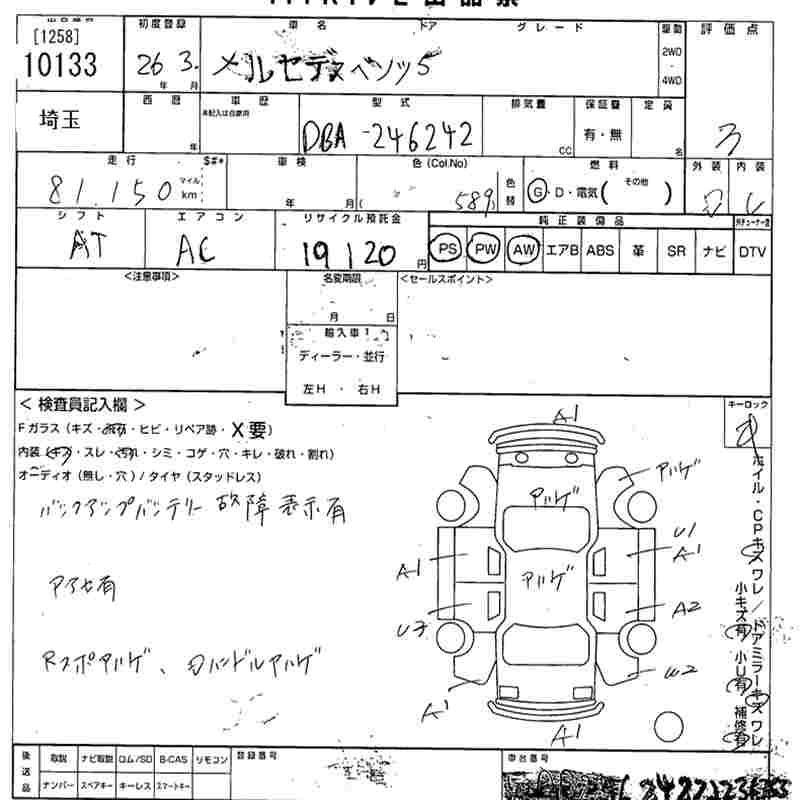 出品票
[1258]
10133
初度登録
26 年 3 月
車名
ドア
グレード
メルセデスベンツ 5
駆動
2WD
4WD
評価点
3
埼玉
西暦
年
車歴
未記入は自家用
型式
DBA-246242
排気量
CC
保証書
有・無
定員
名
外装
内装
走行
$#*
81,150
マイル
km
車検
年 月
色 (Col.No)
589
色替
燃料
G・D・電気(その他)
シフト
AT
エアコン
AC
リサイクル預託金
19120 円
純正装備品
PS PW AW エアB ABS 革 SR ナビ DTV
<注意事項>
名変期限
月 日
<セールスポイント>
輸入車
ディーラー・並行
左H・右H
<検査員記入欄>
キーロック
Fガラス (キズ・ ・ヒビ・リペア跡・X要)
内装 (キズ・スレ・汚れ・シミ・コゲ・穴・キレ・破れ・割れ)
オーディオ (無し・穴) / タイヤ (スタッドレス)
バックアップバッテリー故障表示有
アアセ有
Rスポアルゲ、ロハンドルアルゲ
A1
アルゲ
アルゲ
アルゲ
U1
A1
A1
A2
U3
W2
A1
A1
ホイル・CPキズワレ/ドアミラーキズワレ
小キズ有 小U有 補修有
後送品
取説 ナビ取説 ロム/SD B-CAS リモコン
ナンバー スペアキー キーレス スマートキー
登録番号
車台番号